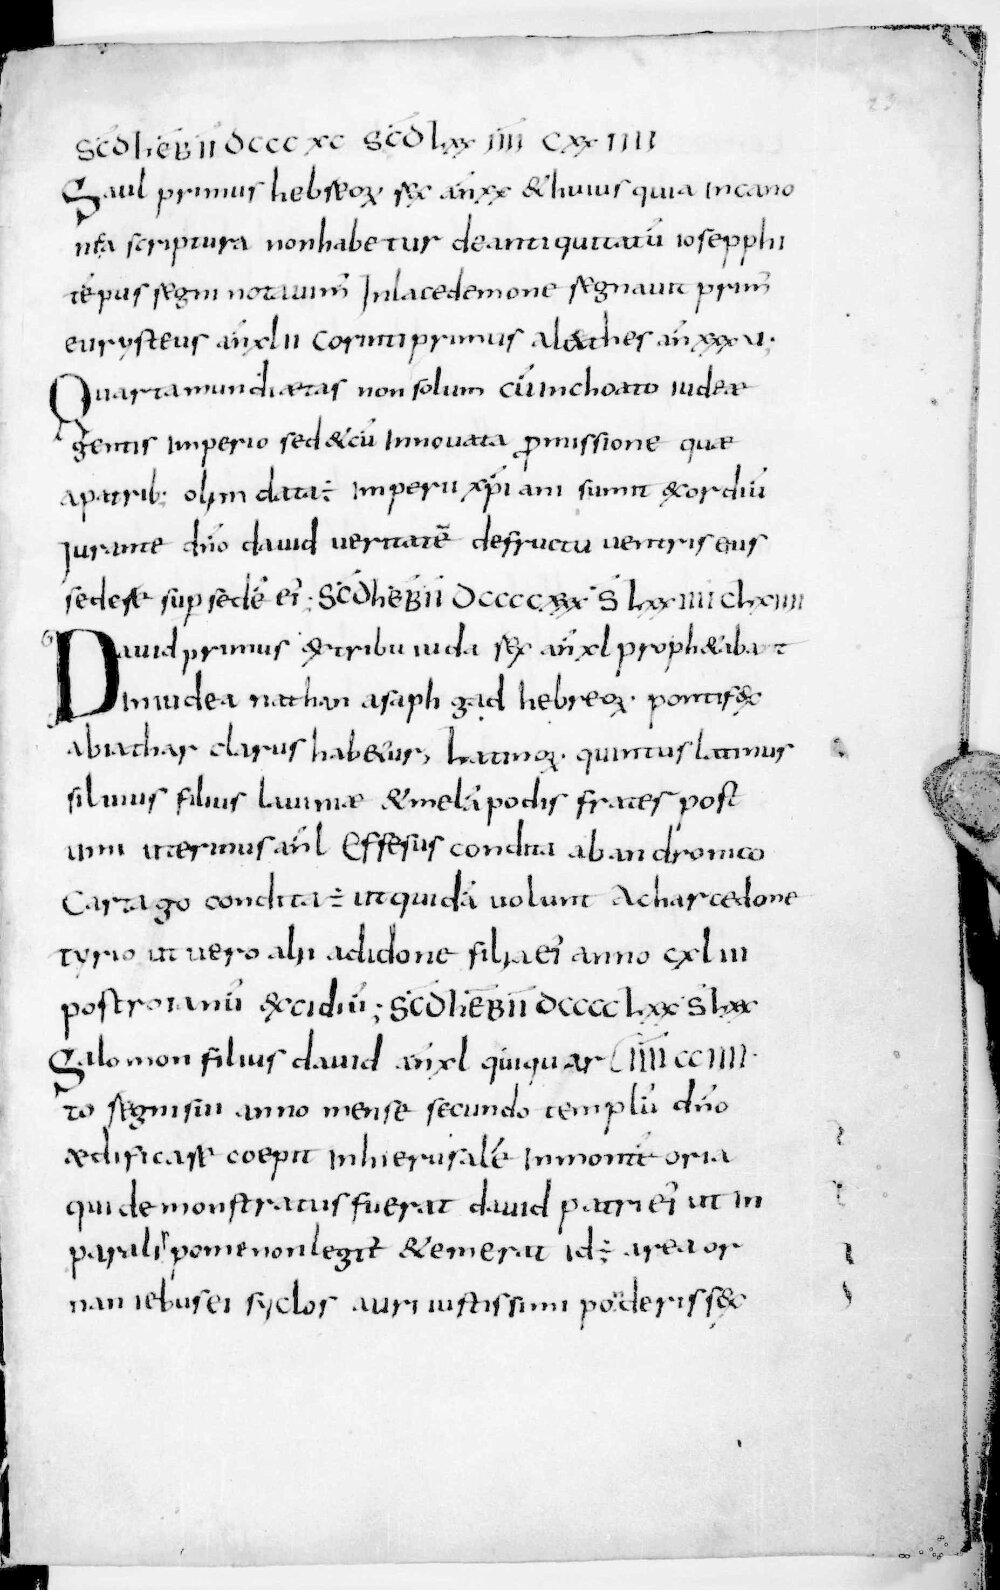 sc̄d hēb īī dccc xc sc̄d lxx īīīī cxx iiii
Saul primus hebreoꝝ rex an̄ xx &huius quia in cano
nica scriptura non habetur de antiquitatū iosepphi
tēpus regni notauim̄ In lacedemone regnauit prim̄
eurysteus an̄ xlii corinti primus al&thes an̄ xxx v;
Quarta mundi ætas non solum cū inchoato iudeæ
gentis imperio sed &cū innouata ꝓmissione quæ
a patrib; olim data ÷ imperii xp̄iani sumit exordiū
Iurante dn̄o dauid ueritatē de fructu uentris eius
sedere sup sedē ei᾽; sc̄d hēb īī dcccc xxx s̄ lxx iiii clxiiii
Dauid primus ex tribu iuda rex an̄ xl proph&abant
in iudea nathan asaph gad hebreoꝝ· pontifex
abiathar clarus hab&ur, Latinoꝝ· quintus latinus
siluius filius lauiniæ &melāpodis frates post
umi uterinus an̄ l Effesus condita ab andronico
Cartago condita ÷ ut quidā uolunt A charcedone
tyrio ut uero alii a didone filia ei᾽ anno cxl iii
post roianū excidiū; sc̄d hēb īī dcccc lxx s̄ lxx
Salomon filius dauid an̄ xl qui quar īīīī cc iiii·
to regni sui anno mense secundo templū dn̄o
ædificare coepit in hierusalē in monte oria
qui demonstratus fuerat dauid patri ei᾽ ut in
paralipomenon legit̄ &emerat id ÷ area or
nan iebusei syclos auri iustissimi pōderis sex